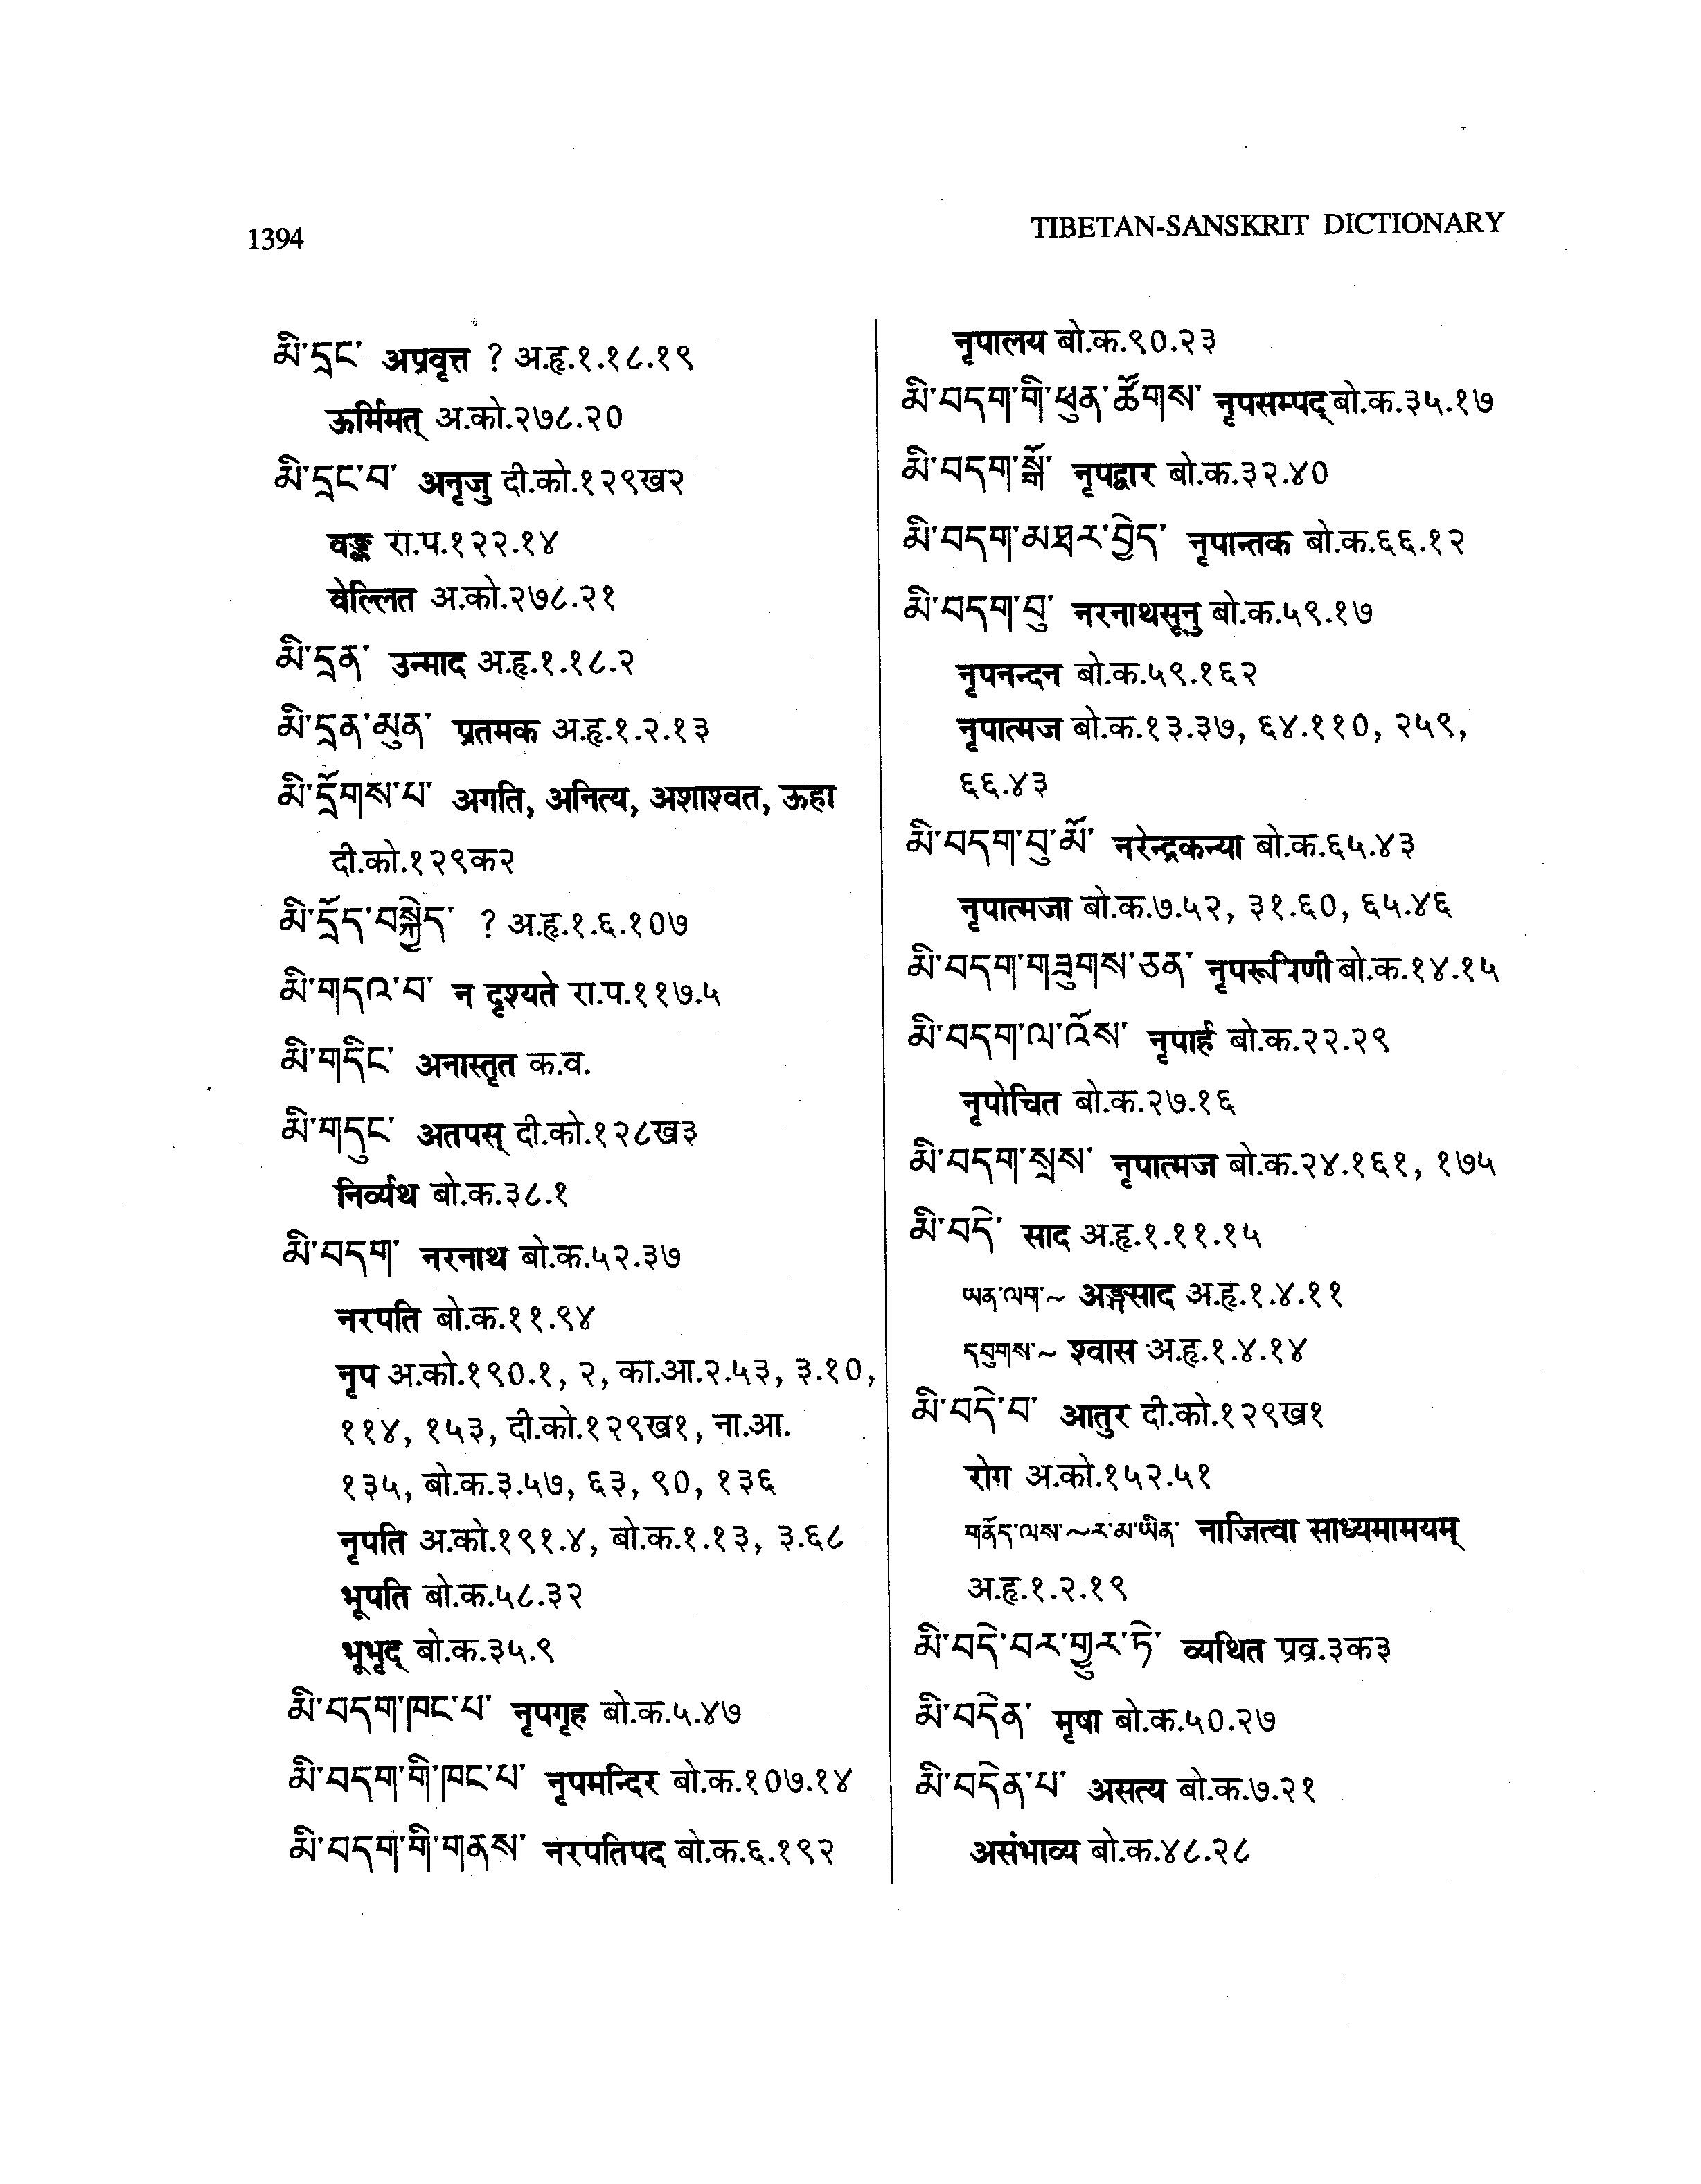 1394
TIBETAN-SANSKRIT DICTIONARY
མི་དྲང་ अप्रवृत्त ? अ.हृ.१.१८.१९
ऊर्मिमत् अ.को.२७८.२०
མི་དྲང་བ་ अनृजु दी.को.१२९ख२
वङ्क रा.प.१२२.१४
वेल्लित अ.को.२७८.२१
མི་དྲན་ उन्माद अ.हृ.१.१८.२
མི་དྲན་མུན་ प्रतमक अ.हृ.१.२.१३
མི་དྲོགས་པ་ अगति, अनित्य, अशाश्वत, ऊहा
दी.को.१२९क२
མི་དྲོད་བསྐྱེད་ ? अ.हृ.१.६.१०७
མི་གདའ་བ་ न दृश्यते रा.प.११७.५
མི་གདིང་ अनास्तृत क.व.
མི་གདུང་ अतपस् दी.को.१२८ख३
निर्व्यथ बो.क.३८.१
མི་བདག་ नरनाथ बो.क.५२.३७
नरपति बो.क.११.९४
नृप अ.को.१९०.१, २, का.आ.२.५३, ३.१०,
११४, १५३, दी.को.१२९ख१, ना.आ.
१३५, बो.क.३.५७, ६३, ९०, १३६
नृपति अ.को.१९१.४, बो.क.१.१३, ३.६८
भूपति बो.क.५८.३२
भूभृद् बो.क.३५.९
མི་བདག་ཁང་པ་ नृपगृह बो.क.५.४७
མི་བདག་གི་ཁང་པ་ नृपमन्दिर बो.क.१०७.१४
མི་བདག་གི་གནས་ नरपतिपद बो.क.६.१९२
नृपालय बो.क.९०.२३
མི་བདག་གི་ཕུན་ཚོགས་ नृपसम्पद् बो.क.३५.१७
མི་བདག་སྒོ་ नृपद्वार बो.क.३२.४०
མི་བདག་མཐར་བྱེད་ नृपान्तक बो.क.६६.१२
མི་བདག་བུ་ नरनाथसूनु बो.क.५९.१७
नृपनन्दन बो.क.५९.१६२
नृपात्मज बो.क.१३.३७, ६४.११०, २५९,
६६.४३
མི་བདག་བུ་མོ་ नरेन्द्रकन्या बो.क.६५.४३
नृपात्मजा बो.क.७.५२, ३१.६०, ६५.४६
མི་བདག་གཟུགས་ཅན་ नृपरूपिणी बो.क.१४.१५
མི་བདག་ལ་འོས་ नृपार्ह बो.क.२२.२९
नृपोचित बो.क.२७.१६
མི་བདག་སྲས་ नृपात्मज बो.क.२४.१६१, १७५
མི་བདེ་ साद अ.हृ.१.११.१५
ཡན་ལག་~ अङ्गसाद अ.हृ.१.४.११
དབུགས་~ श्वास अ.हृ.१.४.१४
མི་བདེ་བ་ आतुर दी.को.१२९ख१
रोग अ.को.१५२.५१
གནོད་ལས་~ར་མ་ཡིན་ नाजित्वा साध्यमामयम्
अ.हृ.१.२.१९
མི་བདེ་བར་གྱུར་ཏེ་ व्यथित प्रव्र.३क३
མི་བདེན་ मृषा बो.क.५०.२७
མི་བདེན་པ་ असत्य बो.क.७.२१
असंभाव्य बो.क.४८.२८